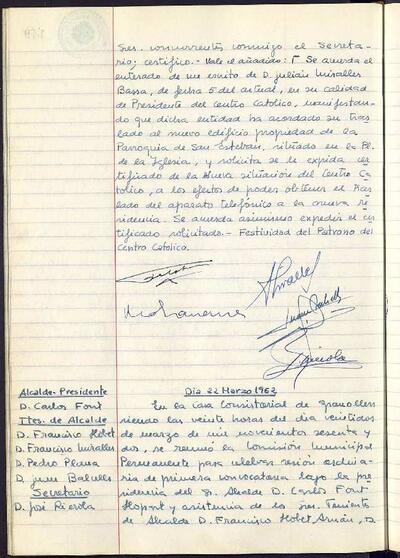 Sres. concurrentes conmigo el Secreta-
rio; certifico.- Vale el añadido: Γ Se acuerda el
enterado de un escrito de D. Julián Miralles
Bassa, de fecha 5 del actual, en su calidad
de Presidente del Centro Católico, manifestan-
do que dicha entidad ha acordado su tras-
lado al nuevo edificio propiedad de la
Parroquia de San Esteban, situado en la Pl.
de la Iglesia, y solicita se le expida cer-
tificado de la nueva situación del Centro Ca-
tólico, a los efectos de poder obtener el tras-
lado del aparato telefónico a la nueva re-
sidencia. Se acuerda asimismo expedir el cer-
tificado solicitado.- Festividad del Patrono del
Centro Católico.
Alcalde-Presidente
D. Carlos Font
Ttes. de Alcalde
D. Francisco Llobet
D. Francisco Miralles
D. Pedro Plana
D. Juan Balcells
Secretario
D. José Piérola
Día 22 Marzo 1962
En la Casa Consistorial de Granollers
siendo las veinte horas del día veintidos
de marzo de mil novecientos sesenta y
dos, se reunió la Comisión Municipal
Permanente para celebrar sesión ordina-
ria de primera convocatoria bajo la pre-
sidencia del Sr. Alcalde D. Carlos Font
Llopart y asistencia de los Sres. Tenientes
de Alcalde D. Francisco Llobet Arnán, D.